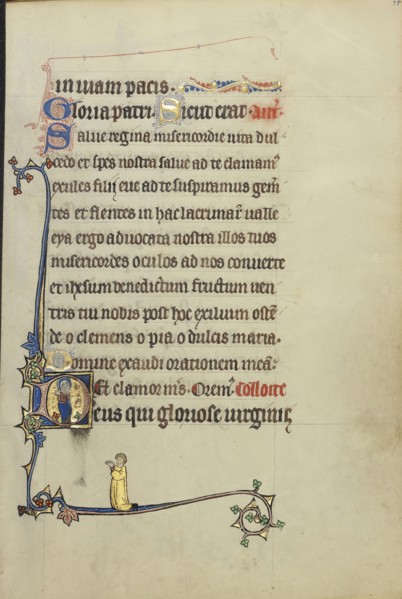 in uiam pacis.
Gloria patri. Sicut erat. Ant̄.
Salue regina misericordie uita dul
cedo et spes nostra salue ad te clamam᷒
exules filij eue ad te suspiramus gem̄
tes et flentes in hac lacrimar̄ ualle
eya ergo aduocata nostra illos tuos
misericordes oculos ad nos conuerte
et ihesum benedictum fructum uen
tris tui nobis post hoc exilium ostē
de o clemens o pia o dulcis maria.
Domine exaudi orationem meā.
Et clamor m̄s. Orem᷒. Collocte
Deus qui gloriose uirginis